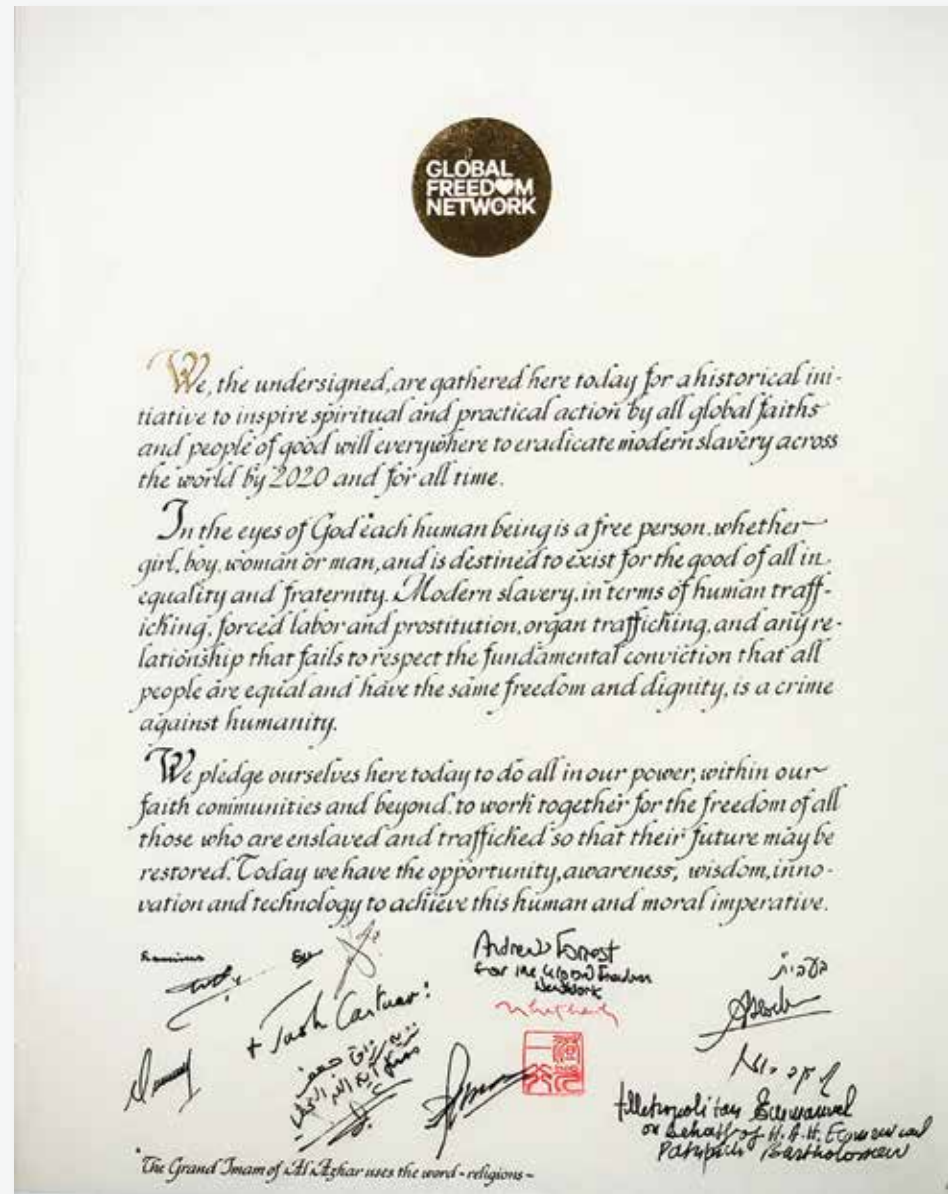 GLOBAL
FREEDOM
NETWORK
We, the undersigned, are gathered here today for a historical ini-
tiative to inspire spiritual and practical action by all global faiths
and people of good will everywhere to eradicate modern slavery across
the world by 2020 and for all time.
In the eyes of God* each human being is a free person, whether
girl, boy, woman or man, and is destined to exist for the good of all in
equality and fraternity. Modern slavery, in terms of human traff-
icking, forced labor and prostitution, organ trafficking, and any re-
lationship that fails to respect the fundamental conviction that all
people are equal and have the same freedom and dignity, is a crime
against humanity.
We pledge ourselves here today to do all in our power, within our
faith communities and beyond, to work together for the freedom of all
those who are enslaved and trafficked so that their future may be
restored. Today we have the opportunity, awareness, wisdom, inno-
vation and technology to achieve this human and moral imperative.
Andrew Forrest
for the Global Freedom
Network
+ Justin Cantuar:
+Metropolitan Emmanuel
on behalf of H.A.H. Ecumenical
Patriarch Bartholomew
*The Grand Imam of Al Azhar uses the word - religions -